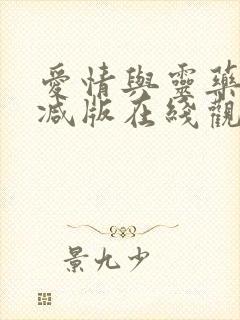 愛情與靈藥
减版在綫觀
景九少